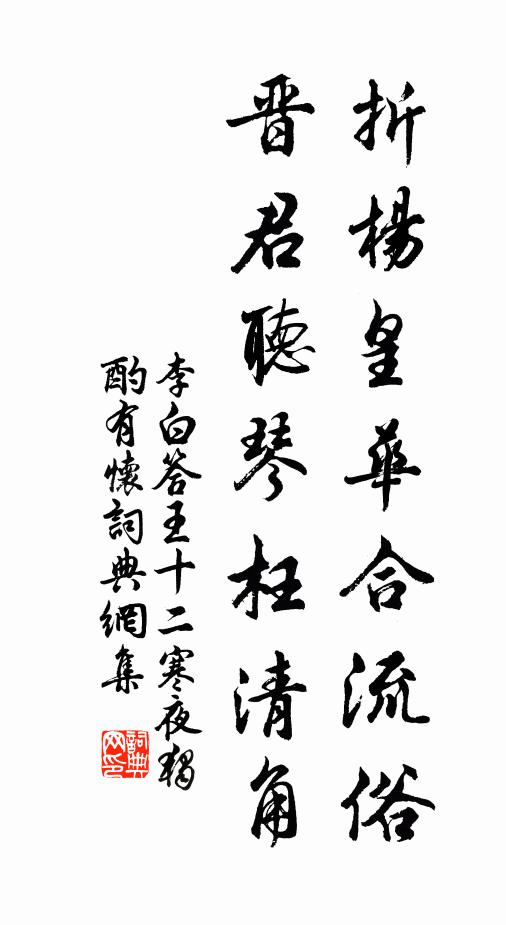 折楊皇華合流俗
晋君聽琴枉清角
李白答王十二寒夜獨
酌有懷詞典網集
詞典
网印